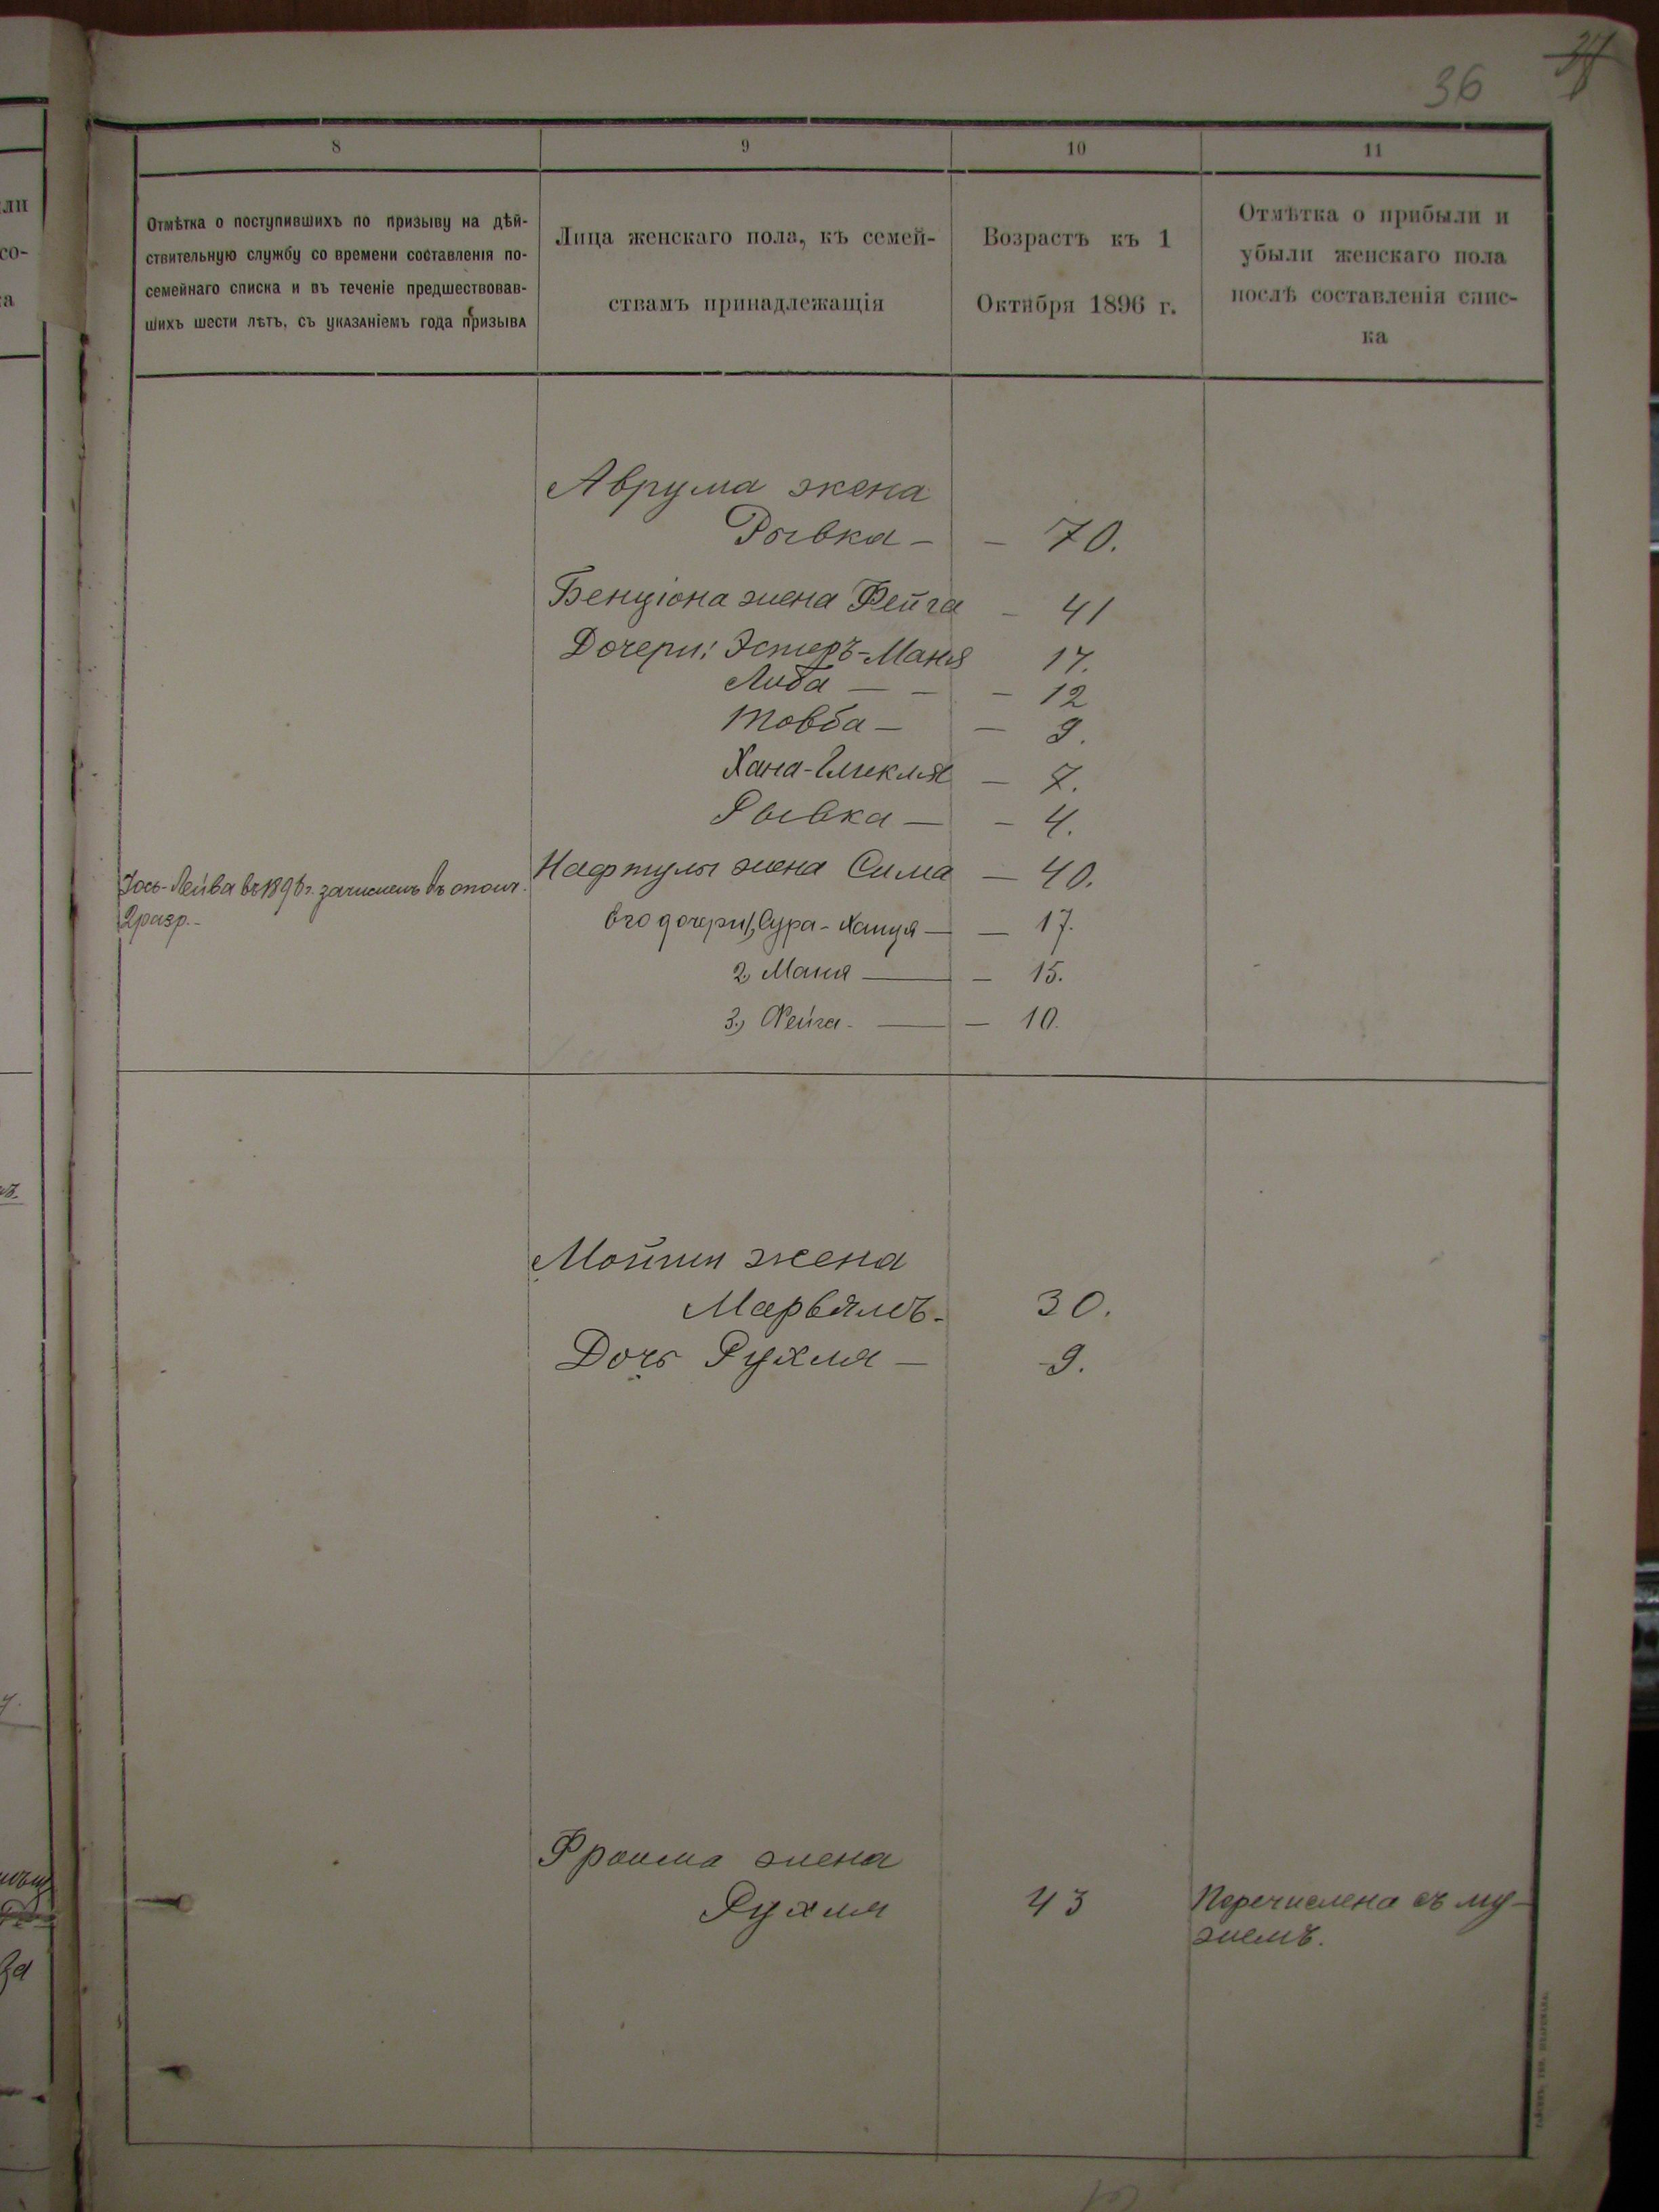 36
37
8
9
10
11
Отмѣтка о поступившихъ по призыву на дѣй-
ствительную службу со времени составленія по-
семейнаго списка и въ теченіе предшествовав-
шихъ шести лѣтъ, съ указаніемъ года призыва
Лица женскаго пола, къ семей-
ствамъ принадлежащія
Возрастъ къ 1
Октября 1896 г.
Отмѣтка о прибыли и
убыли женскаго пола
послѣ составленія спис-
ка
Аврума жена
Рывка — — 70.
Бенціона жена Фейга — 41
Дочери: Эстеръ-Маня 17.
Либа — — — 12
Товба — — 9.
Хана- — 7.
Рывка — — 4.
Нафтулы жена Сима — 40.
Іось-Лейва въ 189 г. зачисленъ въ ополч.
2 разр. -
Его дочери 1, Сура-Ханця — — 17.
2, Маня — — 15.
3., Фейга. — — 10.
Мойши жена
Марьямъ - 30.
Дочь Рухля — 9.
Фроима жена
Рухля 43 Перечислена съ му-
жемъ.